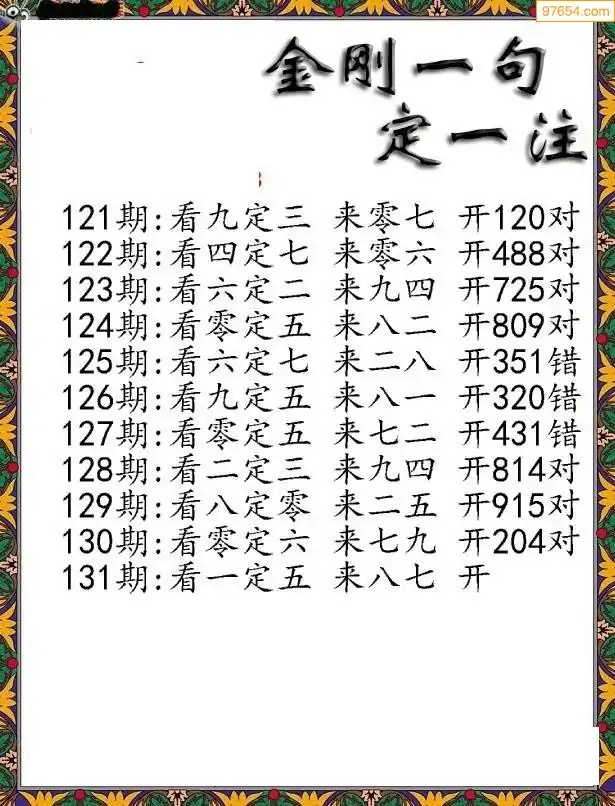 97654.com
金刚一句
定一注
121期:看九定三 来零七 开120对
122期:看四定七 来零六 开488对
123期:看六定二 来九四 开725对
124期:看零定五 来八二 开809对
125期:看六定七 来二八 开351错
126期:看九定五 来八一 开320错
127期:看零定五 来七二 开431错
128期:看二定三 来九四 开814对
129期:看八定零 来二五 开915对
130期:看零定六 来七九 开204对
131期:看一定五 来八七 开